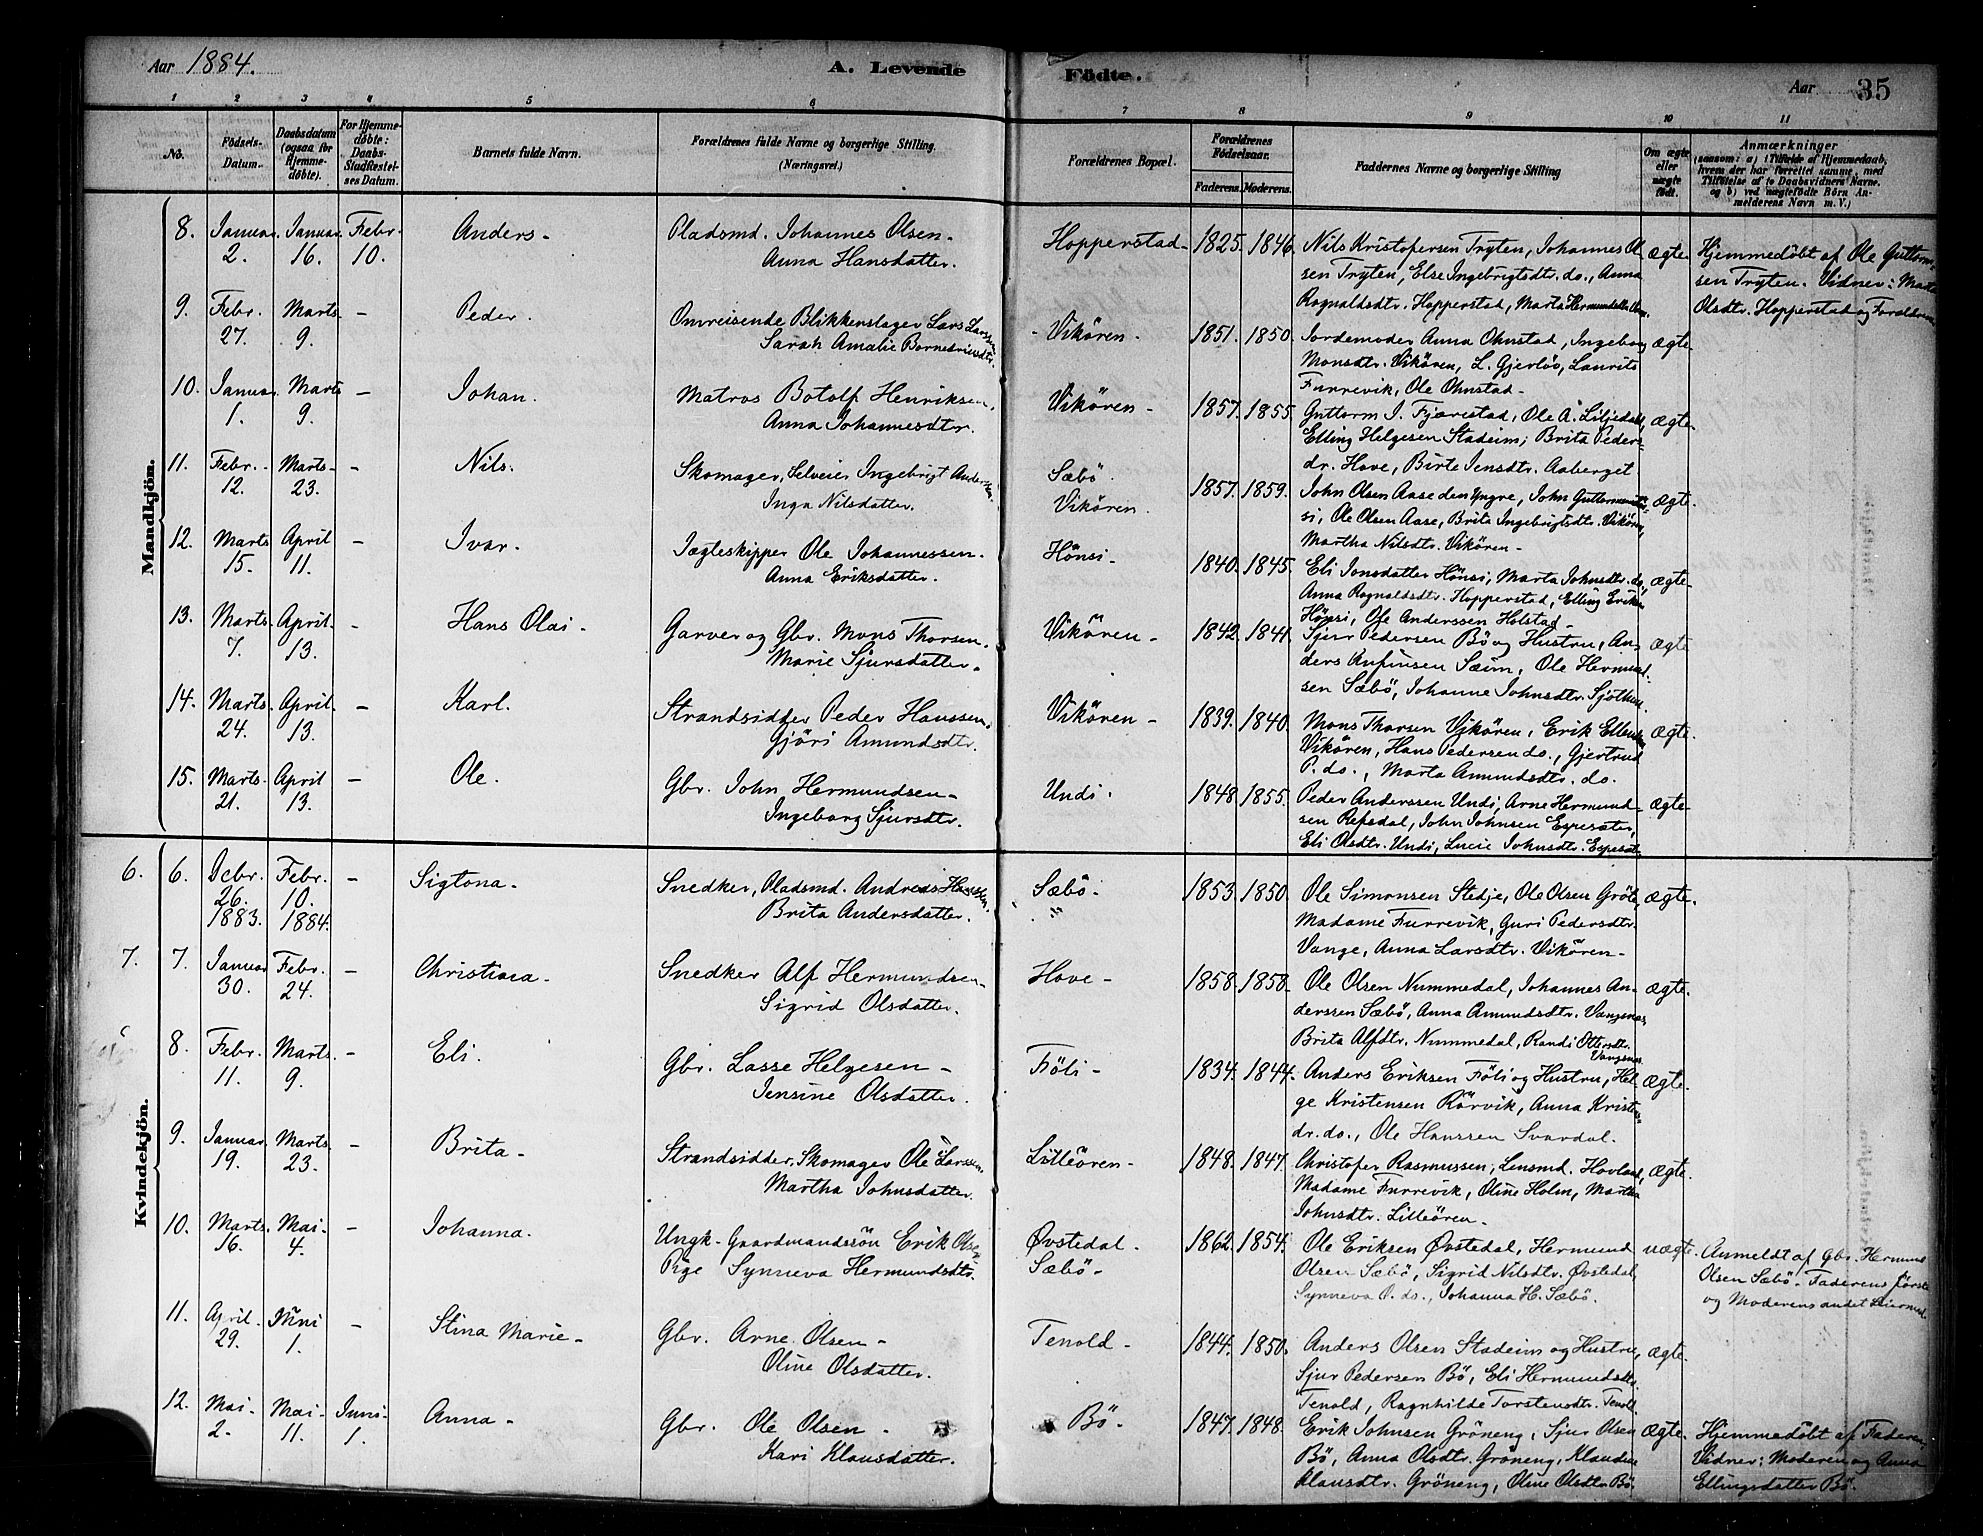 Aar 1884.
A. Levende Födte.
Aar
35
1 2 3 4 5 6 7 8 9 10 11
No.
Födsels-
Datum.
Daabsdatum
(ogsaa for
Hjemme-
döbte).
For Hjemme-
döbte:
Daabs-
Stadfæstel-
ses Datum.
Barnets fulde Navn.
Forældrenes fulde Navne og borgerlige Stilling.
(Næringsvei.)
Forældrenes Bopæl.
Forældrenes
Födselsaar.
Faderens. Moderens.
Faddernes Navne og borgerlige Stilling
Om ægte
eller
uægte
födt.
Anmærkninger
(saasom: a) i Tilfælde af Hjemmedaab,
hvem der har forrettet samme, med
Tilföielse af to Daabsvidners Navne,
og b) ved uægtefödte Börn An-
melderens Navn m. V.)
Mandkjön.
8. Januar 2. Januar 16. Febr. 10. Anders. Pladsmd. Johannes Olsen-
Anna Hansdatter.
Hopperstad- 1825. 1846.
Nils Kristofersen Tryten, Johannes Ol
sen Tryten, Else Ingebrigtsdtr. do., Anna
Ragnaldsdtr. Hopperstad, Marta
ægte-
Hjemmedöbt af Ole Guttorm-
sen Tryten. Vidner: Marta
Olsdtr. Hopperstad og Forældrene
9. Febr. 27. Marts 9. - Peder. Omreisende Blikkenslager Lars Larssen
Sarah Amalie
Vikören. 1851. 1850.
Jordemoder Anna Ohnstad, Ingeborg
Monsdtr. Vikören, L. Gjerlös, Laurits
Furrevik, Ole Ohnstad-
ægte-
10. Januar 1. Marts 9. - Johan. Matros Botolf Henriksen,
Anna Johannesdtr.
Vikören- 1857. 1855.
Guttorm J. Fjærestad, Ole A. Liljedahl,
Elling Helgesen Stadeim; Brita Peders-
dr. Hove, Birte Jensdtr. Aaberget
ægte-
11. Febr. 12. Marts 23. - Nils. Skomager, Selveier Ingebrigt Andersen
Inga Nilsdatter.
Sæbö.
Vikören. 1857. 1859.
John Olsen Aase den Yngre, John
si, Ole Olsen Aase, Brita Ingebrigtsdtr. Vikören,
Martha Nilsdtr. Vikören-
ægte.
12. Marts 15. April 11. - Ivar. Jægteskipper Ole Johannessen.
Anna Eriksdatter.
Hönsi. 1840. 1845.
Eli Jonsdatter Hönsi, Marta Johnsdtr. do,
Anna Ragnaldsdtr. Hopperstad, Elling Eriksen
Hönsi, Ole Anderssen Holstad-
ægte-
13. Marts 7. April 13. - Hans Olai- Garver og Gbr. Mons Thorsen.
Marie Sjursdatter.
Vikören- 1842. 1841.
Sjur Pedersen Bö og Hustru, An-
ders Anfinsen Sæim, Ole Hermund-
sen Sæbö, Johanne Johnsdtr. Sjöthun
ægte
14. Marts 24. April 13. - Karl. Strandsidder Peder Hanssen,
Gjöri Amundsdtr.
Vikören- 1839. 1840.
Mons Thorsen Vikören, Erik Ellingsen
Vikören, Hans Pedersen do., Gjertrud
P. do., Marta Amundsdtr. do.
ægte.
15. Marts 21. April 13. - Ole. Gbr. John Hermundsen-
Ingeborg Sjursdtr.
Undi. 1848. 1855.
Peder Anderssen Undi, Arne Hermund-
sen Refsdal, John Johnsen Espesæter,
Eli Olsdtr. Undi, Lucie Johnsdtr. Espesæt.
ægte-
Kvindekjön.
6. 6. Debr. 26. 1883. Febr. 10. 1884. - Sigtona- Snedker, Pladsmd. Andreas Hanssen.
Brita Andersdatter.
Sæbö. 1853. 1850.
Ole Simonsen Stedje, Ole Olsen Gröte,
Madame Furrevik, Guri Pedersdtr.
Vange, Anna Larsdtr. Vikören-
ægte.
7. 7. Januar 30. Febr. 24. - Christiana- Snedker Alf Hermundsen-
Sigrid Olsdatter.
Hove- 1858. 1858.
Ole Olsen Nummedal, Johannes An-
derssen Sæbö, Anna Amundsdtr. Vangsnæs,
Brita Alfdtr. Nummedal, Randi Ottersdtr.
Vangsnæs
ægte.
8. Febr. 11. Marts 9. - Eli. Gbr. Lasse Helgesen-
Jensine Olsdatter.
Föli- 1834. 1844.
Anders Eriksen Föli og Hustru, Hel-
ge Kristensen Rörvik, Anna Kristens-
dr. do., Ole Hanssen Svardal.
ægte.
9. Januar 19. Marts 23. - Brita- Strandsidder, Skomager Ole Larssen
Martha Johnsdatter.
Lilleören- 1848. 1847.
Christofer Rasmussen, Lensmd. Hovland,
Madame Furrevik, Oline Holm, Martha
Johnsdtr. Lilleören-
ægte.
10. Marts 16. Mai 4. - Johanna. Ungk. Gaardmandssön Erik Olsen
Pige Synneva Hermundsdtr.
Øvstedal.
Sæbö- 1862. 1854.
Ole Eriksen Øvstedal, Hermund
Olsen Sæbö, Sigrid Nilsdtr. Øvstedal,
Synneva O. do., Johanna H. Sæbö.
uægte.
Anmeldt af Gbr. Hermund
Olsen Sæbö. Faderens förste
og Moderens andet Leiermaal.
11. April 29. Juni 1. - Stina Marie- Gbr. Arne Olsen-
Oline Olsdatter.
Tenold- 1844. 1850.
Anders Olsen Stadeim og Hustru,
Sjur Pedersen Bö, Eli Hermundsdtr.
Tenold, Ragnhilde Torstensdtr. Tenold.
ægte.
12. Mai 2. Mai 11. Juni 1. Anna- Gbr. Ole Olsen-
Kari Klausdatter.
Bö. 1847. 1848.
Erik Johnsen Gröneng, Sjur Olsen
Bö, Anna Olsdtr. Gröneng, Klaudine
Klausdtr. Gröneng, Oline Olsdtr Bö.
ægte.
Hjemmedöbt af Faderen,
Vidner: Moderen og Anna
Ellingsdatter Bö.